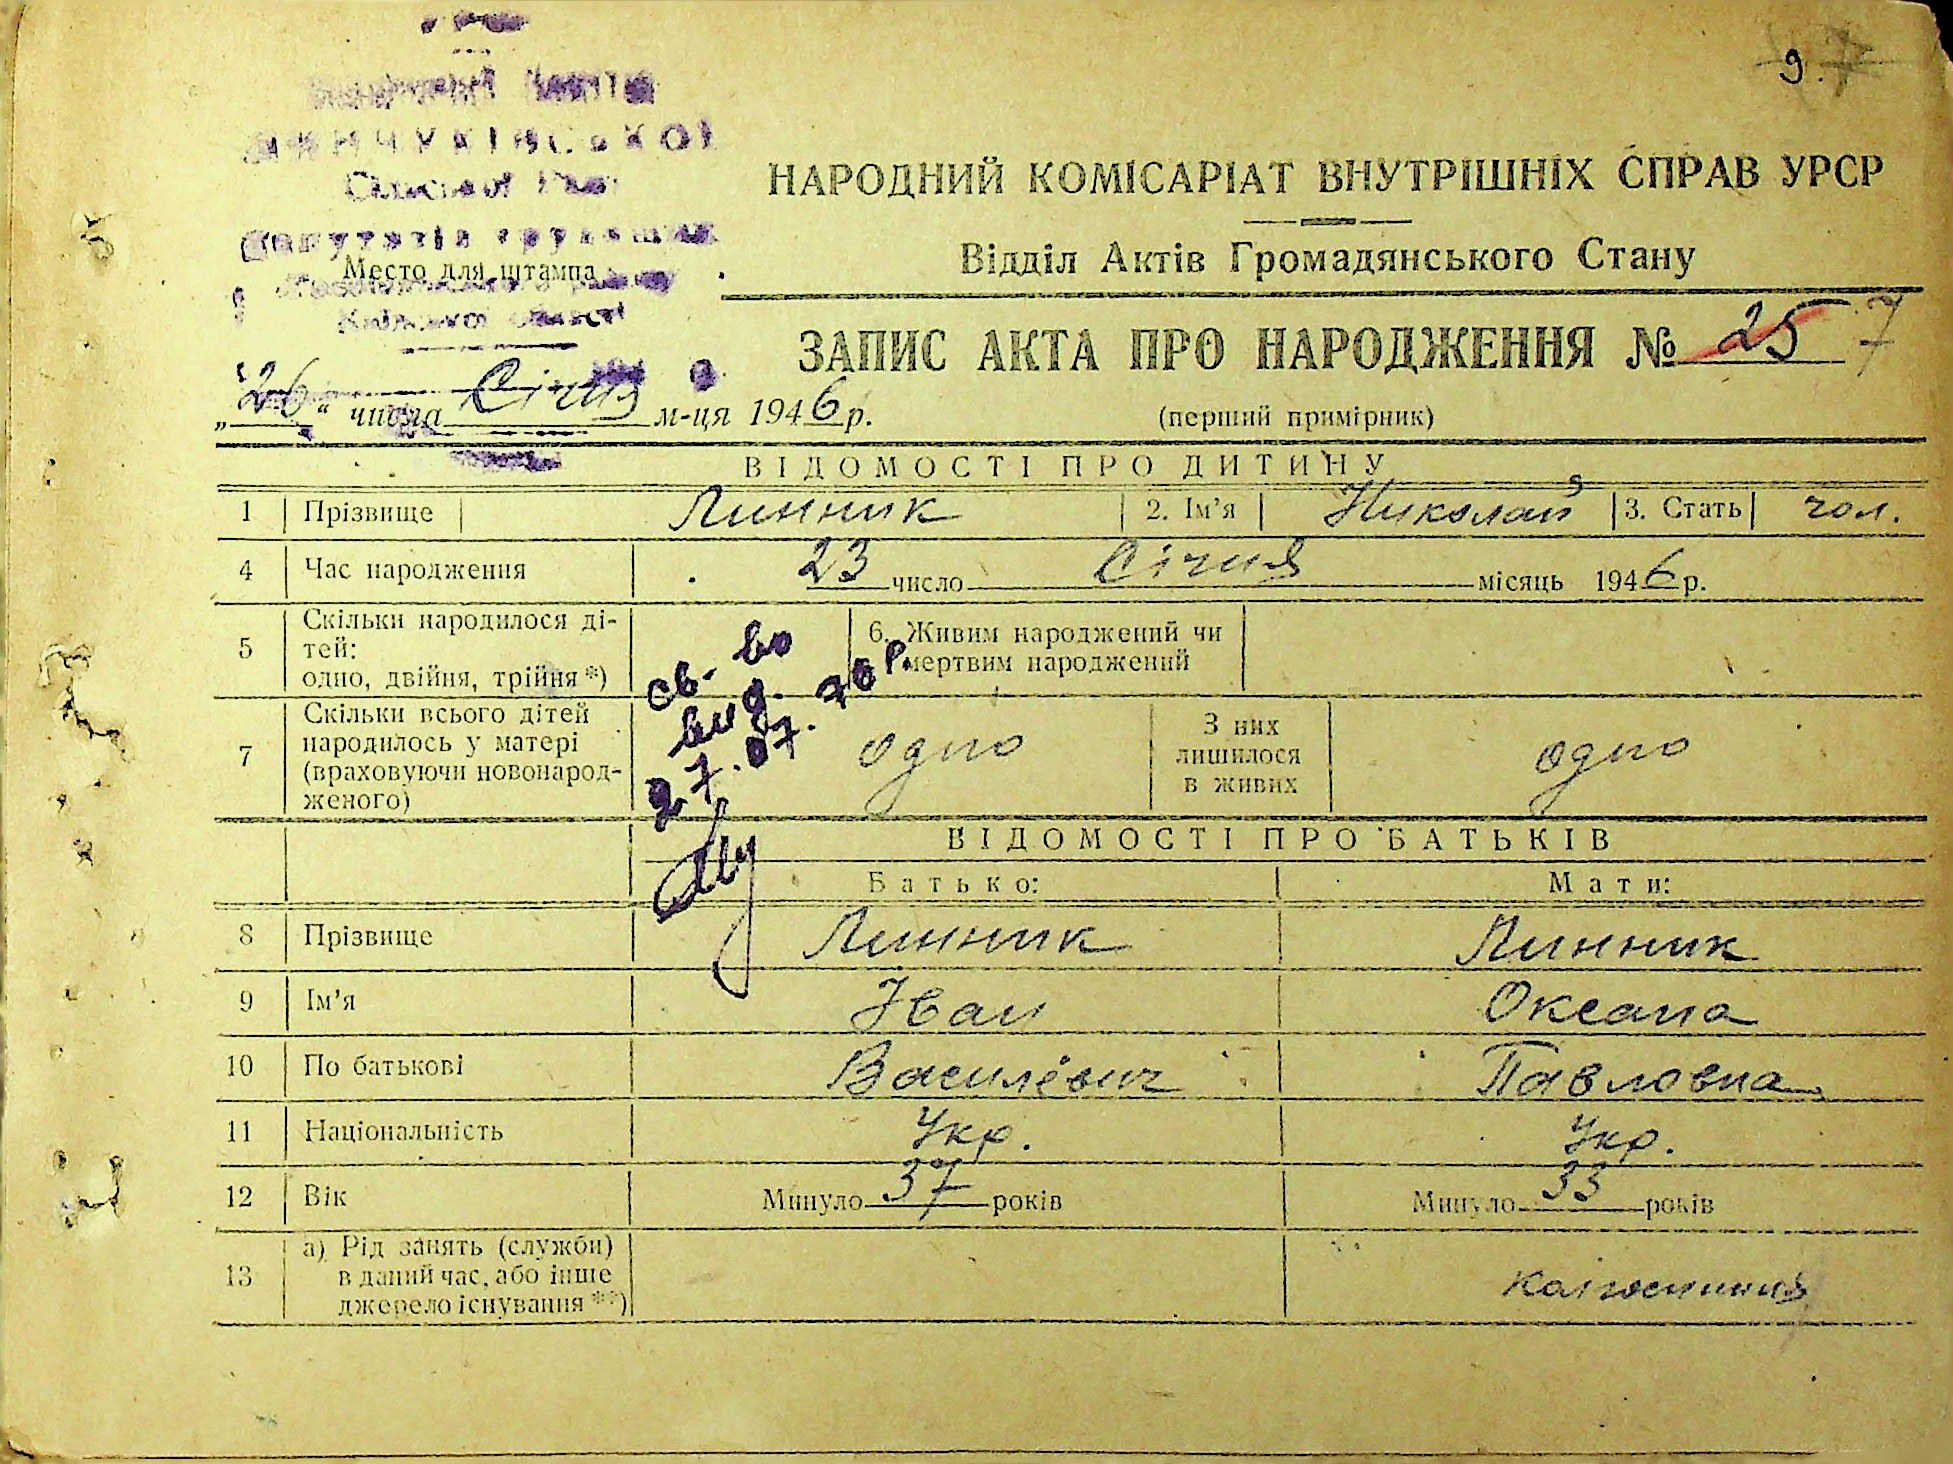 9.
Сільської Ради
Депутатів трудящих
Київської області
Место для штампа
НАРОДНИЙ КОМІСАРІАТ ВНУТРІШНІХ СПРАВ УРСР
Відділ Актів Громадянського Стану
ЗАПИС АКТА ПРО НАРОДЖЕННЯ № 25 7
„26“ числа Січня м-ця 1946 р.
(перший примірник)
ВІДОМОСТІ ПРО ДИТИНУ
1 Прізвище Линник 2. Ім'я Николай 3. Стать чол.
4 Час народження 23 число Січня місяць 1946 р.
5 Скільки народилося ді-
тей:
одно, двійня, трійня *)
6. Живим народжений чи
мертвим народжений
св-во
вид.
27.07.70р.
7 Скільки всього дітей
народилось у матері
(враховуючи новонарод-
женого)
одно
З них
лишилося
в живих
одно
ВІДОМОСТІ ПРО БАТЬКІВ
Батько: Мати:
8 Прізвище Линник Линник
9 Ім'я Іван Оксана
10 По батькові Василёвич Павловна
11 Національність Укр. Укр.
12 Вік Минуло 37 років Минуло 33 років
13 а) Рід занять (служби)
в даний час, або інше
джерело існування **)